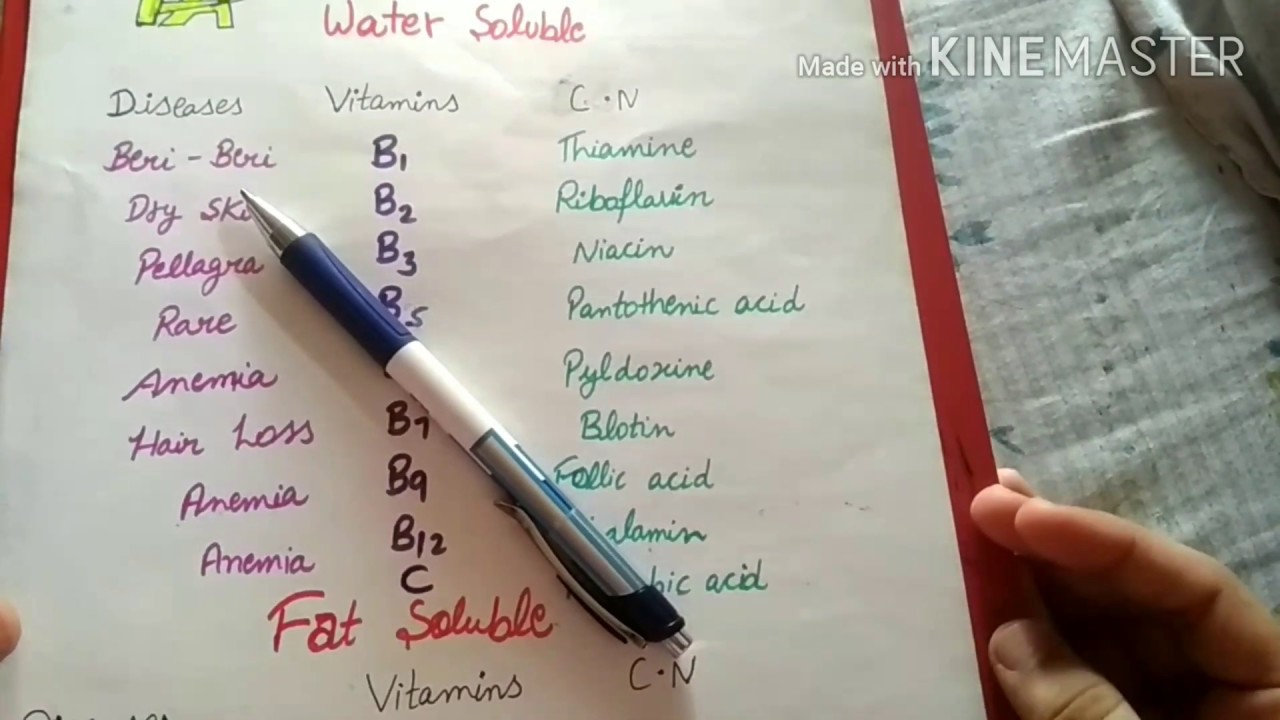 Water Soluble
Made with KINEMASTER
Diseases Vitamins C.N
Beri-Beri B1 Thiamine
Dry B2 Riboflavin
Pellagra B3 Niacin
Rare B5 Pantothenic acid
Anemia Pyldoxine
Hair Loss B7 Blotin
Anemia B9 Follic acid
Anemia B12
C acid
Fat Soluble
Vitamins C.N